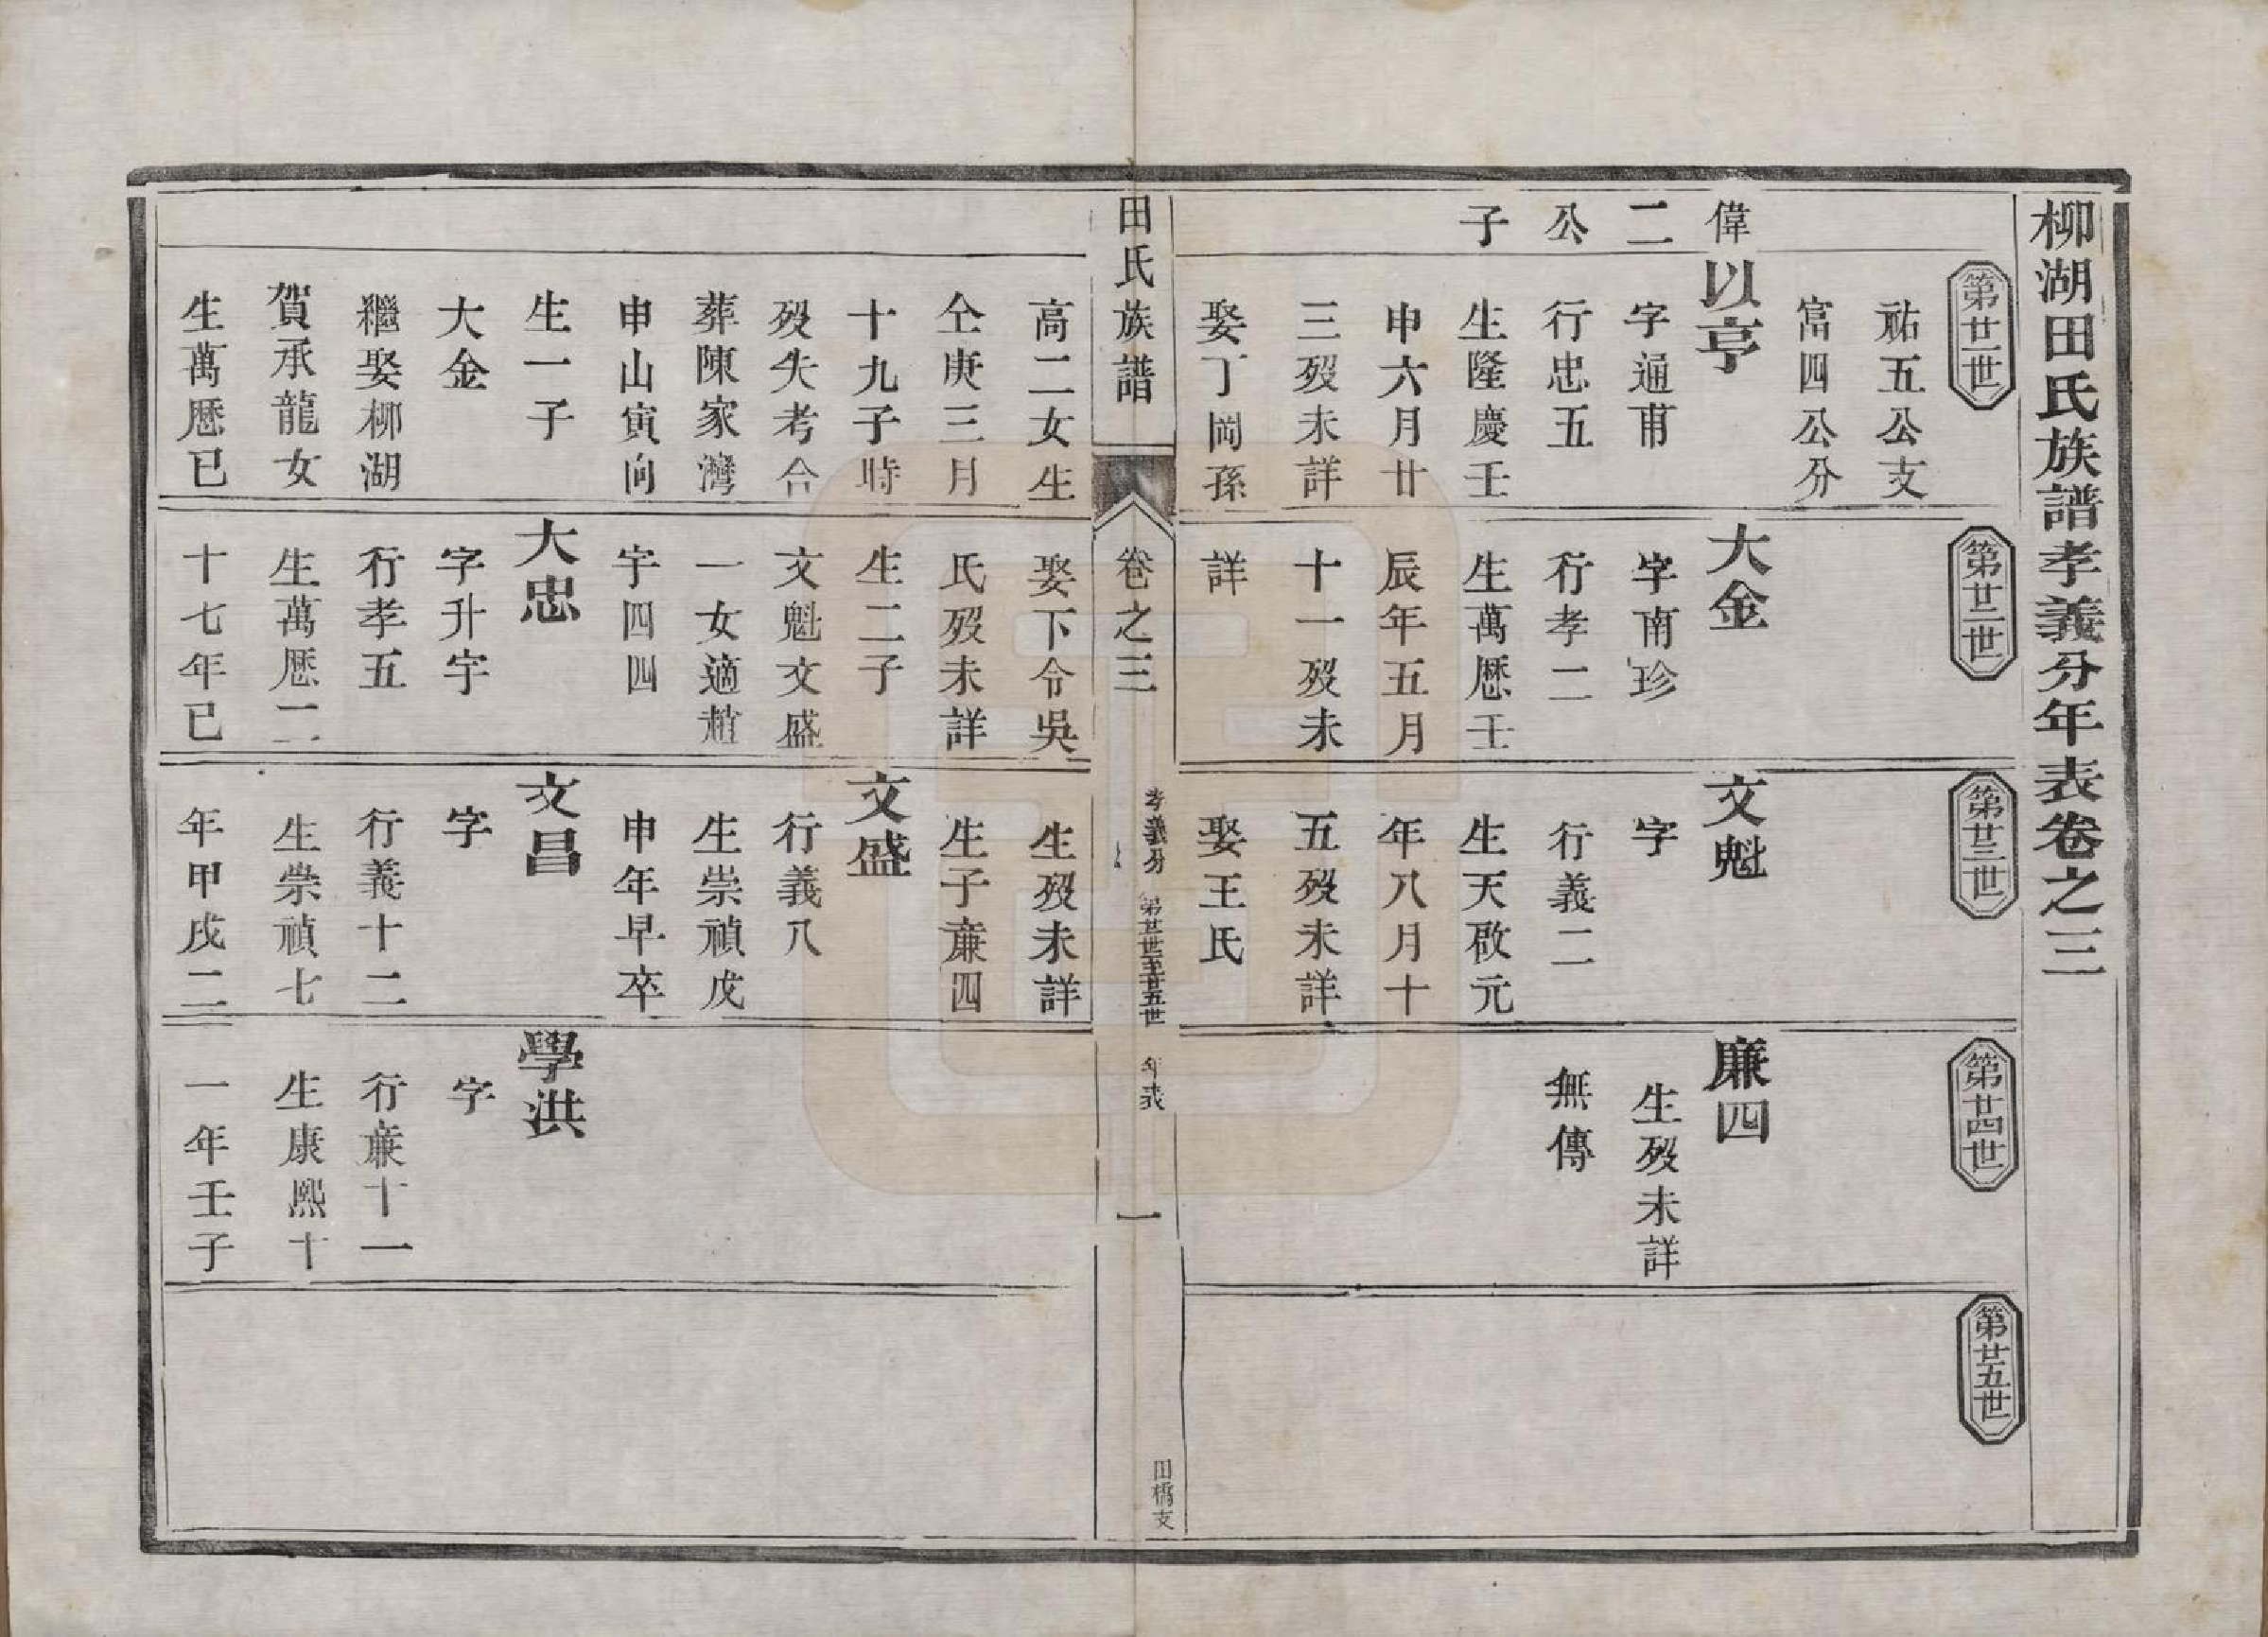 柳湖田氏族譜孝義分年表卷之三
第廿一世
祐五公支
富四公分
偉二公子
以亨
字通甫
行忠五
生隆慶壬
申六月廿
三歿未詳
娶丁岡孫
第廿二世
大金
字南珍
行孝二
生萬歷壬
辰年五月
十一歿未
詳
第廿三世
文魁
字
行義二
生天啟元
年八月十
五歿未詳
娶王氏
第廿四世
廉四
生歿未詳
無傳
第廿五世
田氏族譜
卷之三
孝義分
第廿一世至廿五世
年表
一
田橋支
高二女生
仝庚三月
十九子時
歿失考合
葬陳家灣
申山寅向
生一子
大金
繼娶柳湖
賀承龍女
生萬歷已
娶下令吳
氏歿未詳
生二子
文魁文盛
一女適趙
宇四四
大忠
字升宇
行孝五
生萬歷二
十七年已
生歿未詳
生子廉四
文盛
行義八
生崇禎戊
申年早卒
文昌
字
行義十二
生崇禎七
年甲戌二
學洪
字
行廉十一
生康熙十
一年壬子